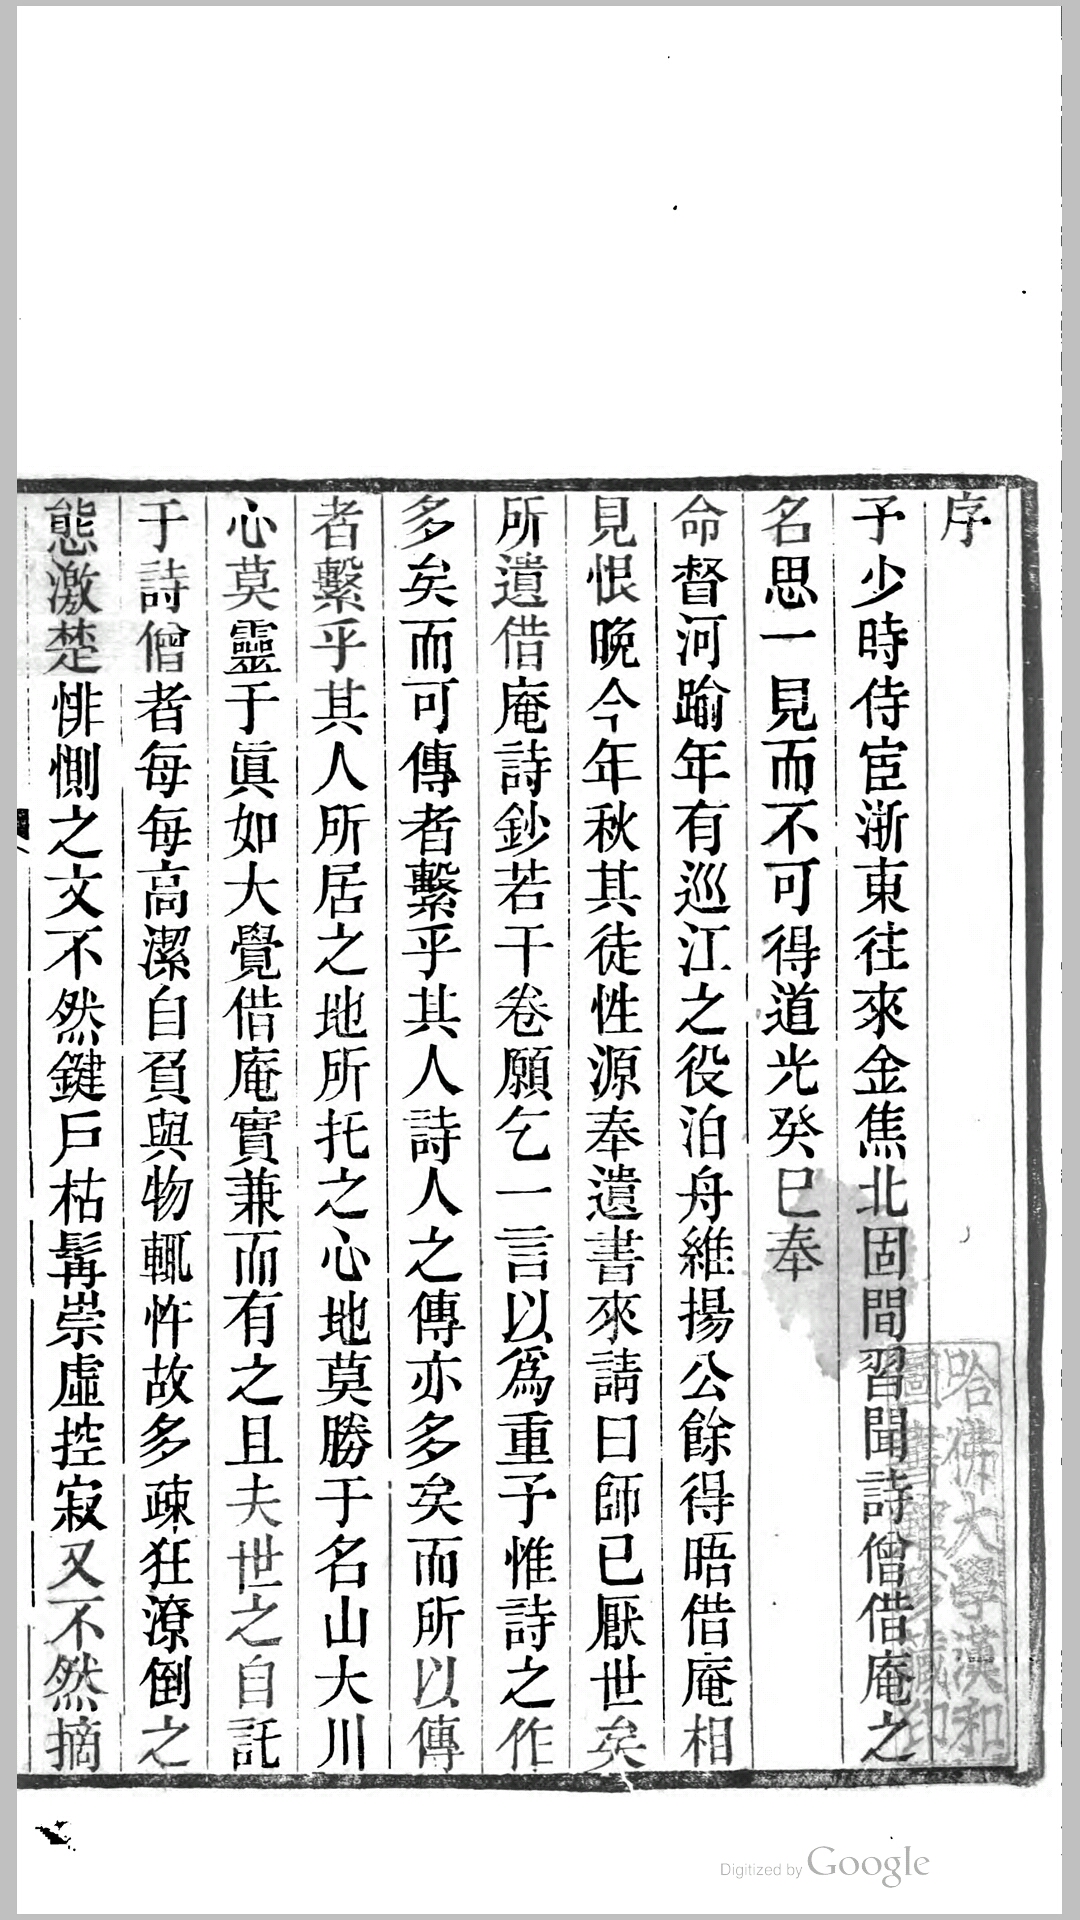 序
予少時侍宦浙東往來金焦北固間習聞詩僧借庵之
名思一見而不可得道光癸巳奉
命督河踰年有巡江之役泊舟維揚公餘得晤借庵相
見恨晚今年秋其徒性源奉遺書來請曰師已厭世矣
所遺借庵詩鈔若干卷願乞一言以爲重予惟詩之作
多矣而可傳者繫乎其人詩人之傳亦多矣而所以傳
者繫乎其人所居之地所托之心地莫勝于名山大川
心莫靈于眞如大覺借庵實兼而有之且夫世之自託
于詩僧者每每高潔自負與物輒忤故多疎狂潦倒之
態激楚悱惻之文不然鍵戶枯髯崇虛控寂又不然摘
哈佛大學漢和
圖書館珍藏印
Digitized by Google